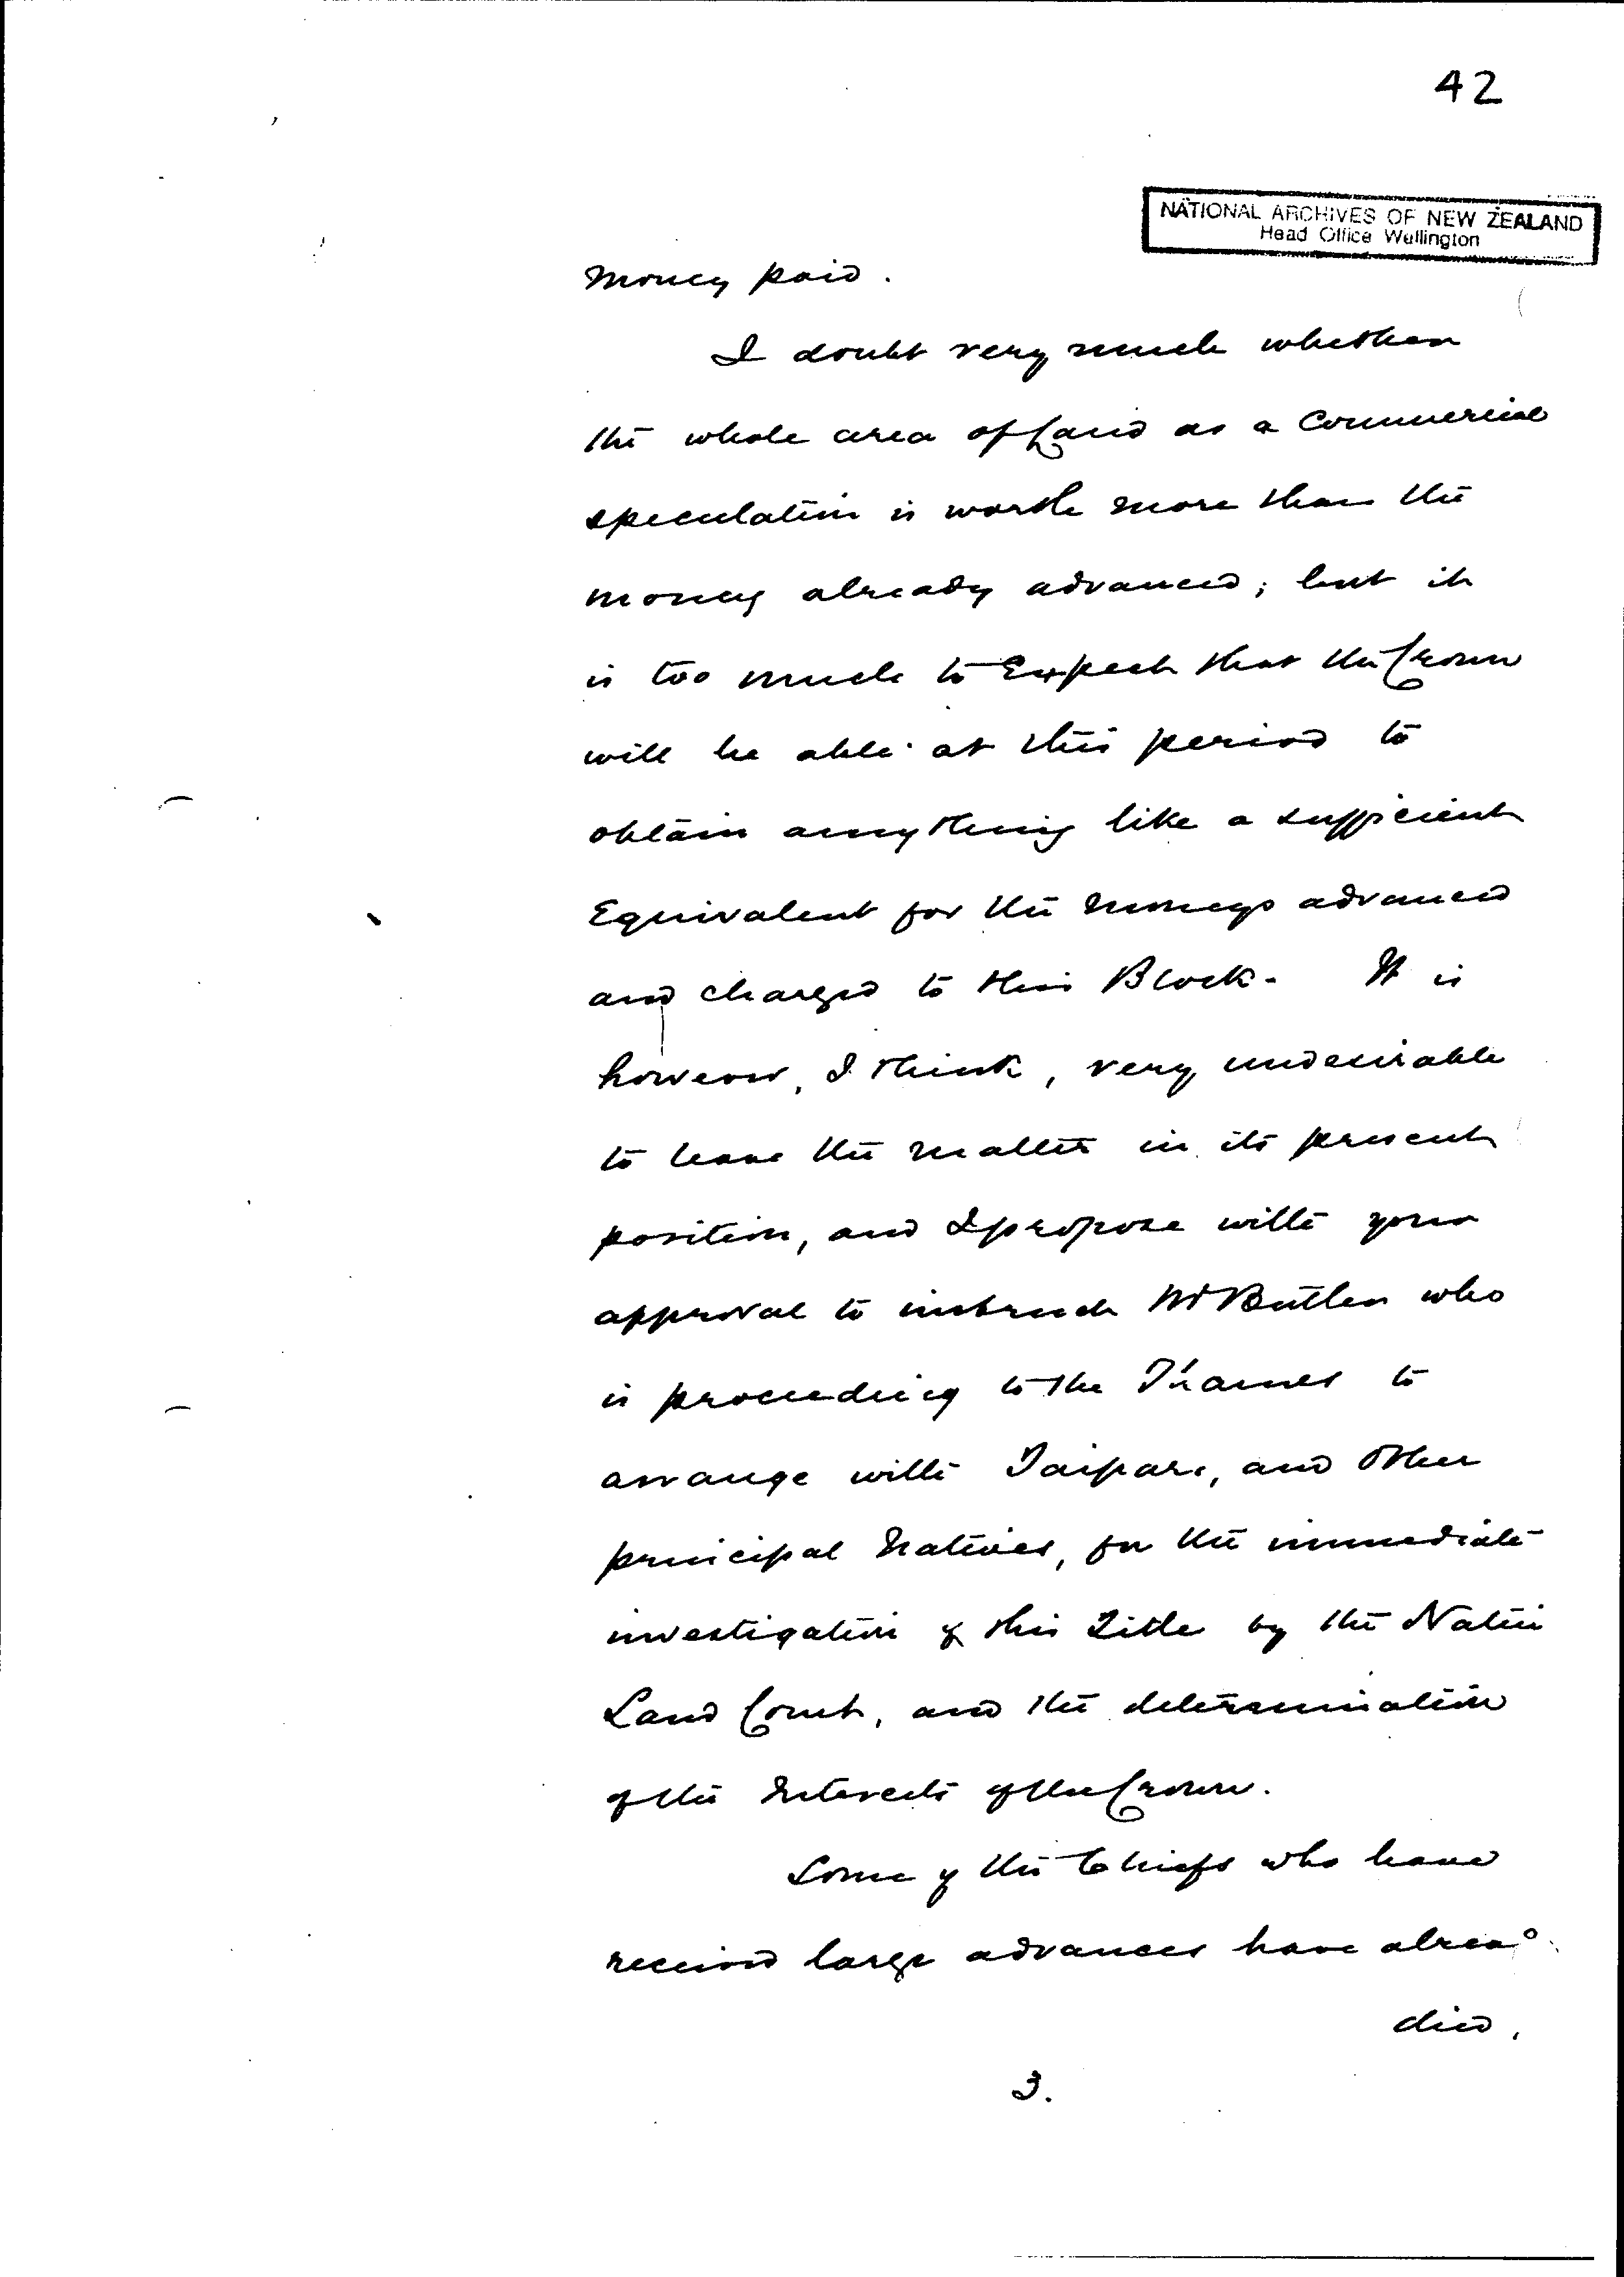 42
NATIONAL ARCHIVES OF NEW ZEALAND
Head Office Wellington
money paid.
I doubt very much whether
the whole area of Land as a Commercial
speculation is worth more than the
money already advanced; but it
is too much to Expect that the Crown
will be able at this period to
obtain anything like a sufficient
Equivalent for the moneys advanced
and charged to this Block. It is
however, I think, very undesirable
to leave the matter in its present
position, and I propose with your
approval to instruct Mr Butler who
is proceeding to the Thames to
arrange with Taipari, and other
principal Natives, for the immediate
investigation of this Title by the Native
Land Court, and the determination
of the Interests of the Crown.
Some of the Chiefs who have
received large advances have alread
died.
3.